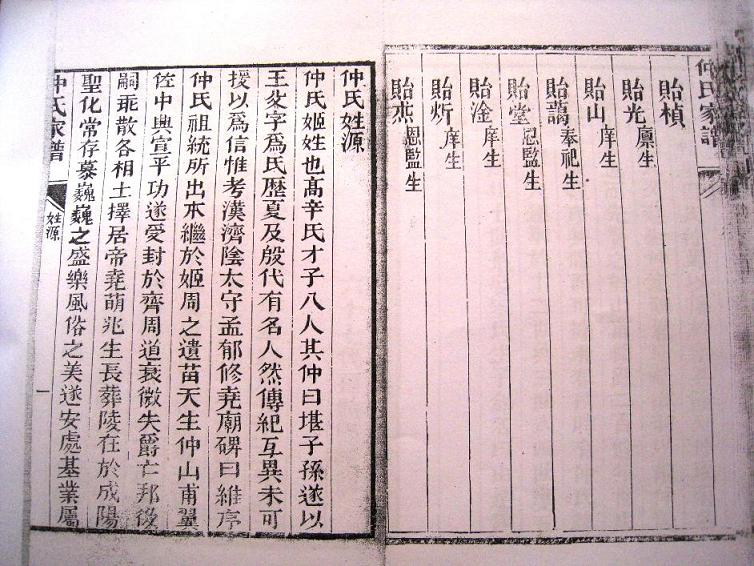 仲氏家譜
貽楨
貽光廩生
貽山庠生
貽藹奉祀生
貽堂恩監生
貽淦庠生
貽炘庠生
貽燕恩監生
仲氏姓源
仲氏姬姓也高辛氏才子八人其仲曰堪子孫遂以
王父字爲氏歷夏及殷代有名人然傳紀互異未可
援以爲信惟考漢濟陰太守孟郁修堯廟碑曰維序
仲氏祖統所出本繼於姬周之遺苗天生仲山甫翼
佐中興宣平功遂受封於齊周道衰微失爵亡邦後
嗣乖散各相土擇居帝堯萌兆生長葬陵在於成陽
聖化常存慕巍巍之盛樂風俗之美遂安處基業屬
仲氏家譜 姓源 一